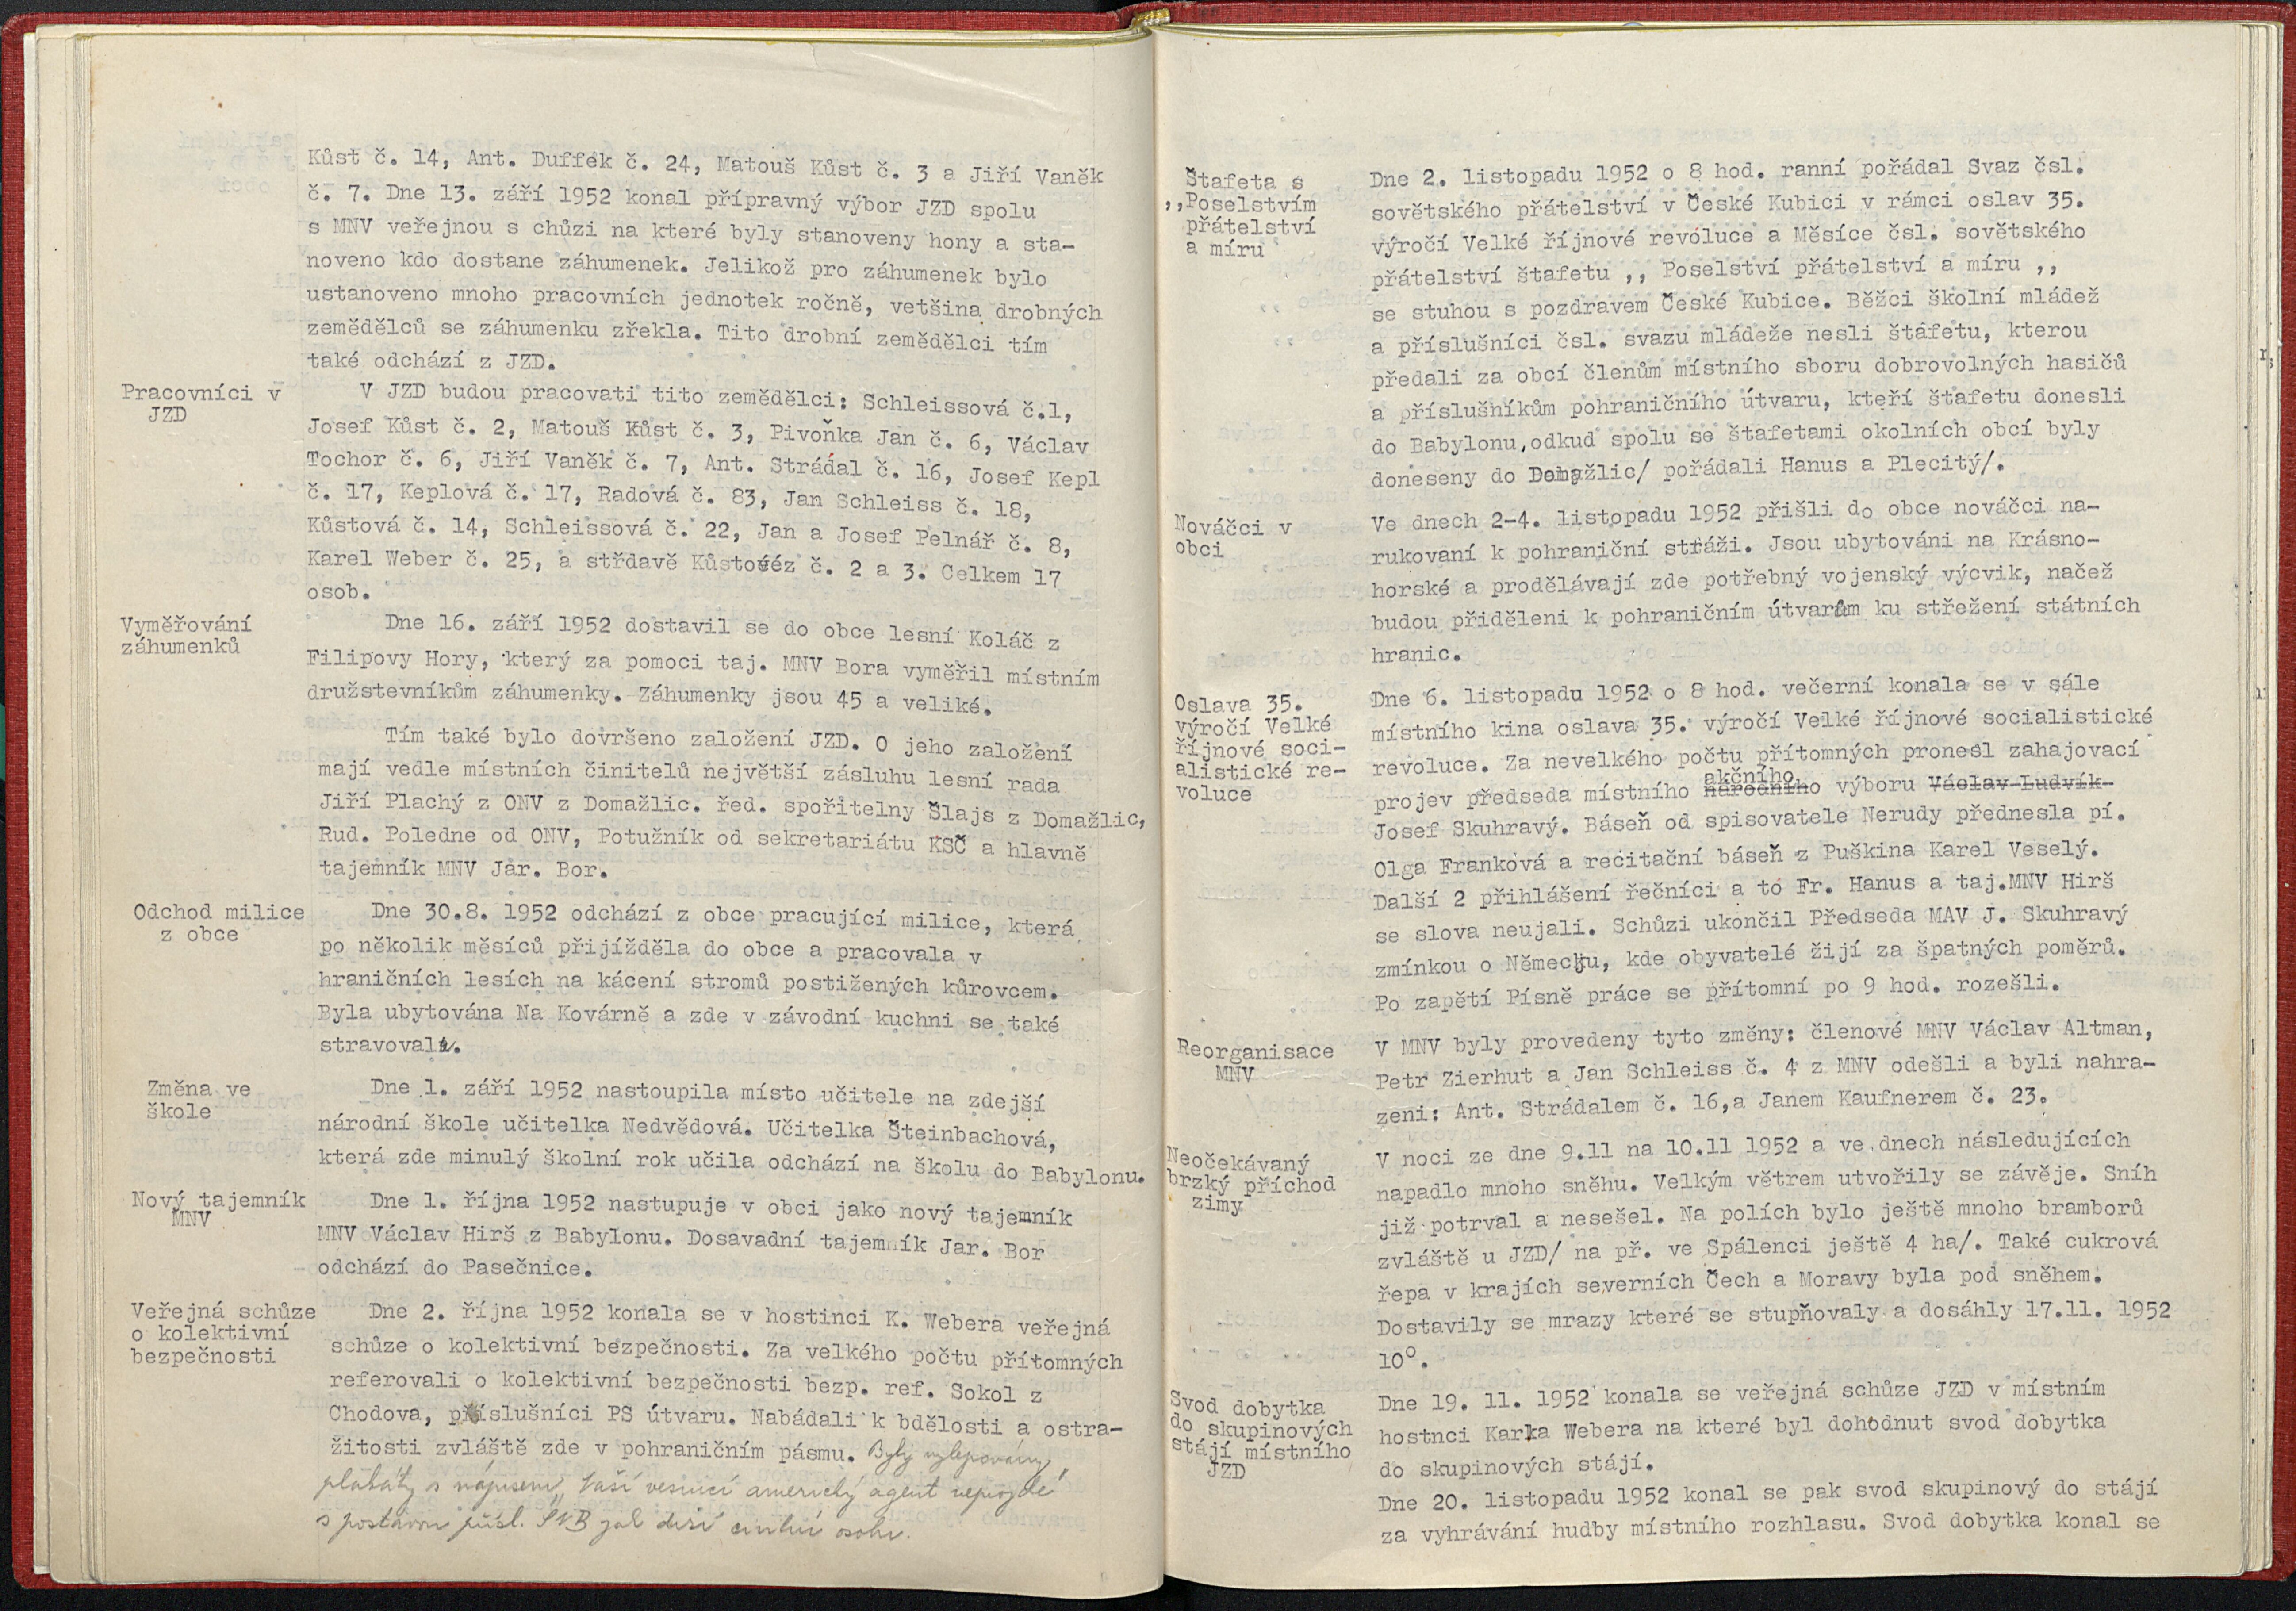 Kůst č. 14, Ant. Duffek č. 24, Matouš Kůst č. 3 a Jiří Vaněk
č. 7. Dne 13. září 1952 konal přípravný výbor JZD spolu
s MNV veřejnou s chůzi na které byly stanoveny hony a sta-
noveno kdo dostane záhumenek. Jelikož pro záhumenek bylo
ustanoveno mnoho pracovních jednotek ročně, vetšina drobných
zemědělců se záhumenku zřekla. Tito drobní zemědělci tím
také odchází z JZD.
Pracovníci v
JZD
V JZD budou pracovati tito zemědělci: Schleissová č.1,
Josef Kůst č. 2, Matouš Kůst č. 3, Pivoňka Jan č. 6, Václav
Tochor č. 6, Jiří Vaněk č. 7, Ant. Strádal č. 16, Josef Kepl
č. 17, Keplová č. 17, Radová č. 83, Jan Schleiss č. 18,
Kůstová č. 14, Schleissová č. 22, Jan a Josef Pelnář č. 8,
Karel Weber č. 25, a střdavě Kůstovéz č. 2 a 3. Celkem 17
osob.
Vyměřování
záhumenků
Dne 16. září 1952 dostavil se do obce lesní Koláč z
Filipovy Hory, který za pomoci taj. MNV Bora vyměřil místním
družstevníkům záhumenky. Záhumenky jsou 45 a veliké.
Tím také bylo dovršeno založení JZD. O jeho založení
mají vedle místních činitelů největší zásluhu lesní rada
Jiří Plachý z ONV z Domažlic. řed. spořitelny Šlajs z Domažlic,
Rud. Poledne od ONV, Potužník od sekretariátu KSČ a hlavně
tajemník MNV Jar. Bor.
Odchod milice
z obce
Dne 30.8. 1952 odchází z obce pracující milice, která
po několik měsíců přijížděla do obce a pracovala v
hraničních lesích na kácení stromů postižených kůrovcem.
Byla ubytována Na Kovárně a zde v závodní kuchni se také
stravovala.
Změna ve
škole
Dne 1. září 1952 nastoupila místo učitele na zdejší
národní škole učitelka Nedvědová. Učitelka Šteinbachová,
která zde minulý školní rok učila odchází na školu do Babylonu.
Nový tajemník
MNV
Dne 1. října 1952 nastupuje v obci jako nový tajemník
MNV Václav Hirš z Babylonu. Dosavadní tajemník Jar. Bor
odchází do Pasečnice.
Veřejná schůze
o kolektivní
bezpečnosti
Dne 2. října 1952 konala se v hostinci K. Webera veřejná
schůze o kolektivní bezpečnosti. Za velkého počtu přítomných
referovali o kolektivní bezpečnosti bezp. ref. Sokol z
Chodova, příslušníci PS útvaru. Nabádali k bdělosti a ostra-
žitosti zvláště zde v pohraničním pásmu. Byly vylepovány
plakáty s nápisem „Vaší vesnicí americký agent neprojde"
s postavou přísl. SNB jak drží civilní osobu.
Štafeta s
,,Poselstvím
přátelství
a míru
Dne 2. listopadu 1952 o 8 hod. ranní pořádal Svaz čsl.
sovětského přátelství v České Kubici v rámci oslav 35.
výročí Velké říjnové revoluce a Měsíce čsl. sovětského
přátelství štafetu ,, Poselství přátelství a míru ,,
se stuhou s pozdravem České Kubice. Běžci školní mládež
a příslušníci čsl. svazu mládeže nesli štafetu, kterou
předali za obcí členům místního sboru dobrovolných hasičů
a příslušníkům pohraničního útvaru, kteří štafetu donesli
do Babylonu, odkud spolu se štafetami okolních obcí byly
doneseny do Domažlic/ pořádali Hanus a Plecitý/.
Nováčci v
obci
Ve dnech 2-4. listopadu 1952 přišli do obce nováčci na-
rukovaní k pohraniční stráži. Jsou ubytováni na Krásno-
horské a prodělávají zde potřebný vojenský výcvik, načež
budou přiděleni k pohraničním útvarům ku střežení státních
hranic.
Oslava 35.
výročí Velké
říjnové soci-
alistické re-
voluce
Dne 6. listopadu 1952 o 8 hod. večerní konala se v sále
místního kina oslava 35. výročí Velké říjnové socialistické
revoluce. Za nevelkého počtu přítomných pronesl zahajovací
akčního
projev předseda místního národního výboru Václav Ludvík
Josef Skuhravý. Báseň od spisovatele Nerudy přednesla pí.
Olga Franková a recitační báseň z Puškina Karel Veselý.
Další 2 přihlášení řečníci a to Fr. Hanus a taj.MNV Hirš
se slova neujali. Schůzi ukončil Předseda MAV J. Skuhravý
zmínkou o Německu, kde obyvatelé žijí za špatných poměrů.
Po zapětí Písně práce se přítomní po 9 hod. rozešli.
Reorganisace
MNV
V MNV byly provedeny tyto změny: členové MNV Václav Altman,
Petr Zierhut a Jan Schleiss č. 4 z MNV odešli a byli nahra-
zeni: Ant. Strádalem č. 16,a Janem Kaufnerem č. 23.
Neočekávaný
brzký příchod
zimy
V noci ze dne 9.11 na 10.11 1952 a ve dnech následujících
napadlo mnoho sněhu. Velkým větrem utvořily se závěje. Sníh
již potrval a nesešel. Na polích bylo ještě mnoho bramborů
zvláště u JZD/ na př. ve Spálenci ještě 4 ha/. Také cukrová
řepa v krajích severních Čech a Moravy byla pod sněhem.
Dostavily se mrazy které se stupňovaly a dosáhly 17.11. 1952
10°.
Svod dobytka
do skupinových
stájí místního
JZD
Dne 19. 11. 1952 konala se veřejná schůze JZD v místním
hostnci Karla Webera na které byl dohodnut svod dobytka
do skupinových stájí.
Dne 20. listopadu 1952 konal se pak svod skupinový do stájí
za vyhrávání hudby místního rozhlasu. Svod dobytka konal se